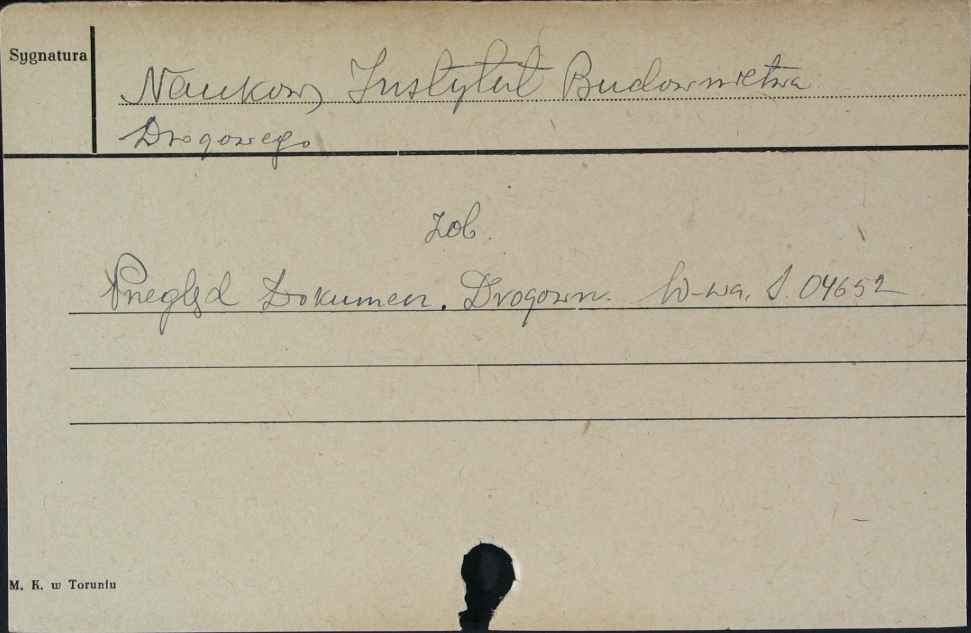 Sygnatura
Naukowy Instytut Budownictwa
Drogowego
zob.
Przegląd Dokumen. Drogown. W-wa, S. 04652
M. K. w Toruniu